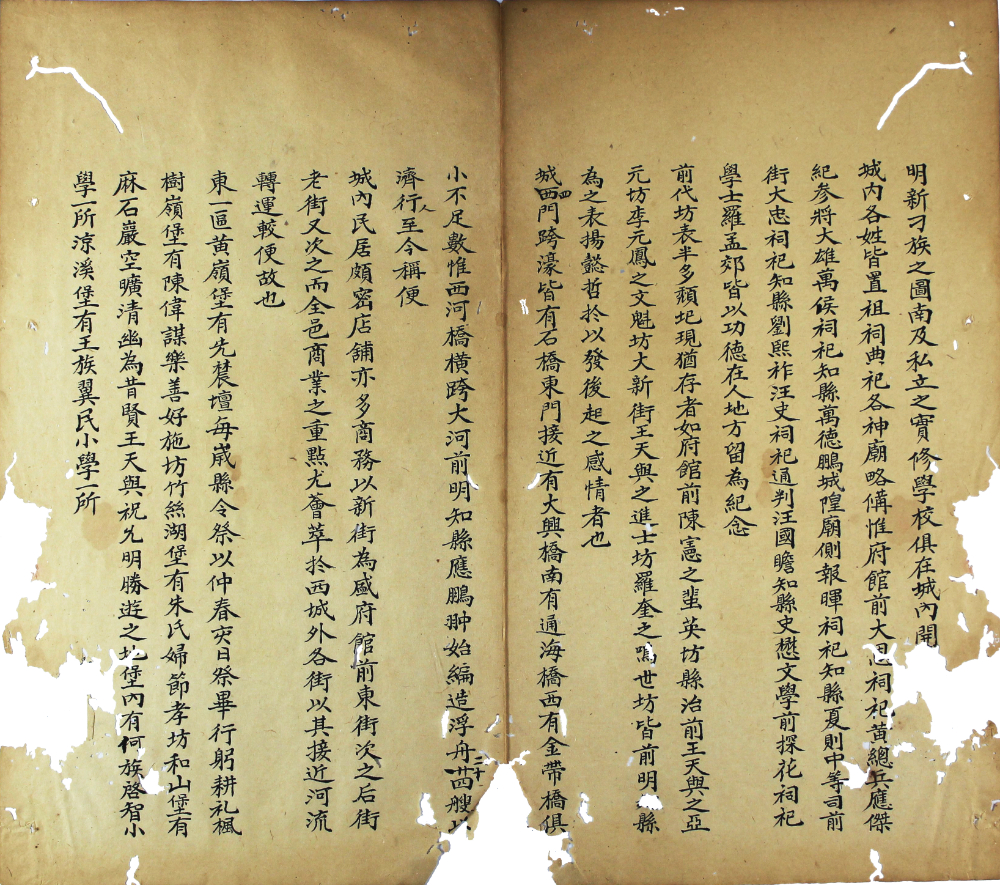 明新刁族之圖南及私立之實修學校俱在城內開
城內各姓皆置祖祠典祀各神廟略備惟府館前大忠祠祀黃總兵應傑
紀參將大雄萬侯祠祀知縣萬德鵬城隍廟側報暉祠祀知縣夏則中等司前
街大忠祠祀知縣劉熙祚汪史祠祀通判汪國瞻知縣史懋文學前探花祠祀
學士羅孟郊皆以功德在人地方留為紀念
前代坊表半多頹圮現猶存者如府館前陳憲之蜚英坊縣治前王天與之亞
元坊李元鳳之文魁坊大新街王天與之進士坊羅奎之鳴世坊皆前明縣
為之表揚懿哲於以發後起之感情者也
城四西門跨濠皆有石橋東門接近有大興橋南有通海橋西有金帶橋俱
小不足數惟西河橋橫跨大河前明知縣應鵬翀始編造浮舟二十四艘以
濟行人至今稱便
城內民居頗密店舖亦多商務以新街為盛府館前東街次之后街
老街又次之而全邑商業之重點尤薈萃於西城外各街以其接近河流
轉運較便故也
東一區黃嶺堡有先農壇每歲縣令祭以仲春亥日祭畢行躬耕礼楓
樹嶺堡有陳偉謀樂善好施坊竹絲湖堡有朱氏婦節孝坊和山堡有
麻石巖空曠清幽為昔賢王天與祝允明勝遊之地堡內有何族啓智小
學一所涼溪堡有王族翼民小學一所